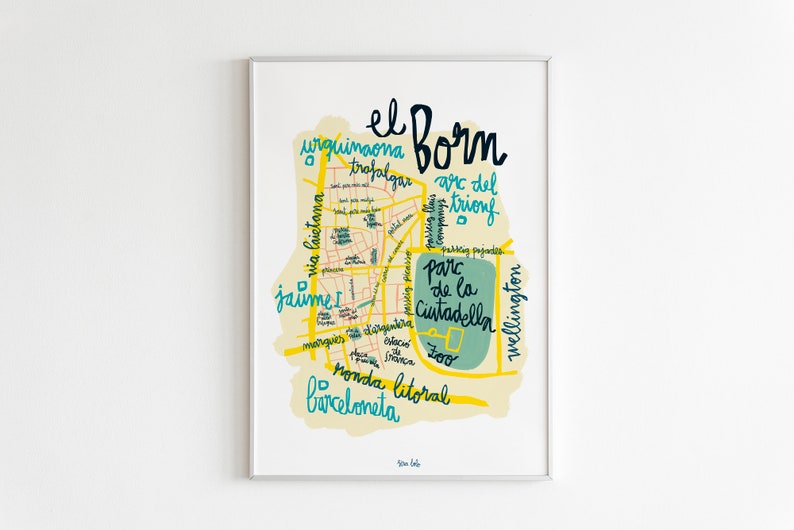 el Born
urquinaona
trafalgar
arc del
triomf
sant pere més alt
sant pere mitjà
sant pere més baix
via laietana
portal nou
passeig lluís
companys
passeig pujades
princesa
carrer del comerç
passeig picasso
parc
de la
Ciutadella
wellington
jaume I
marquès d'argentera
estació
de
frança
zoo
ronda litoral
barceloneta